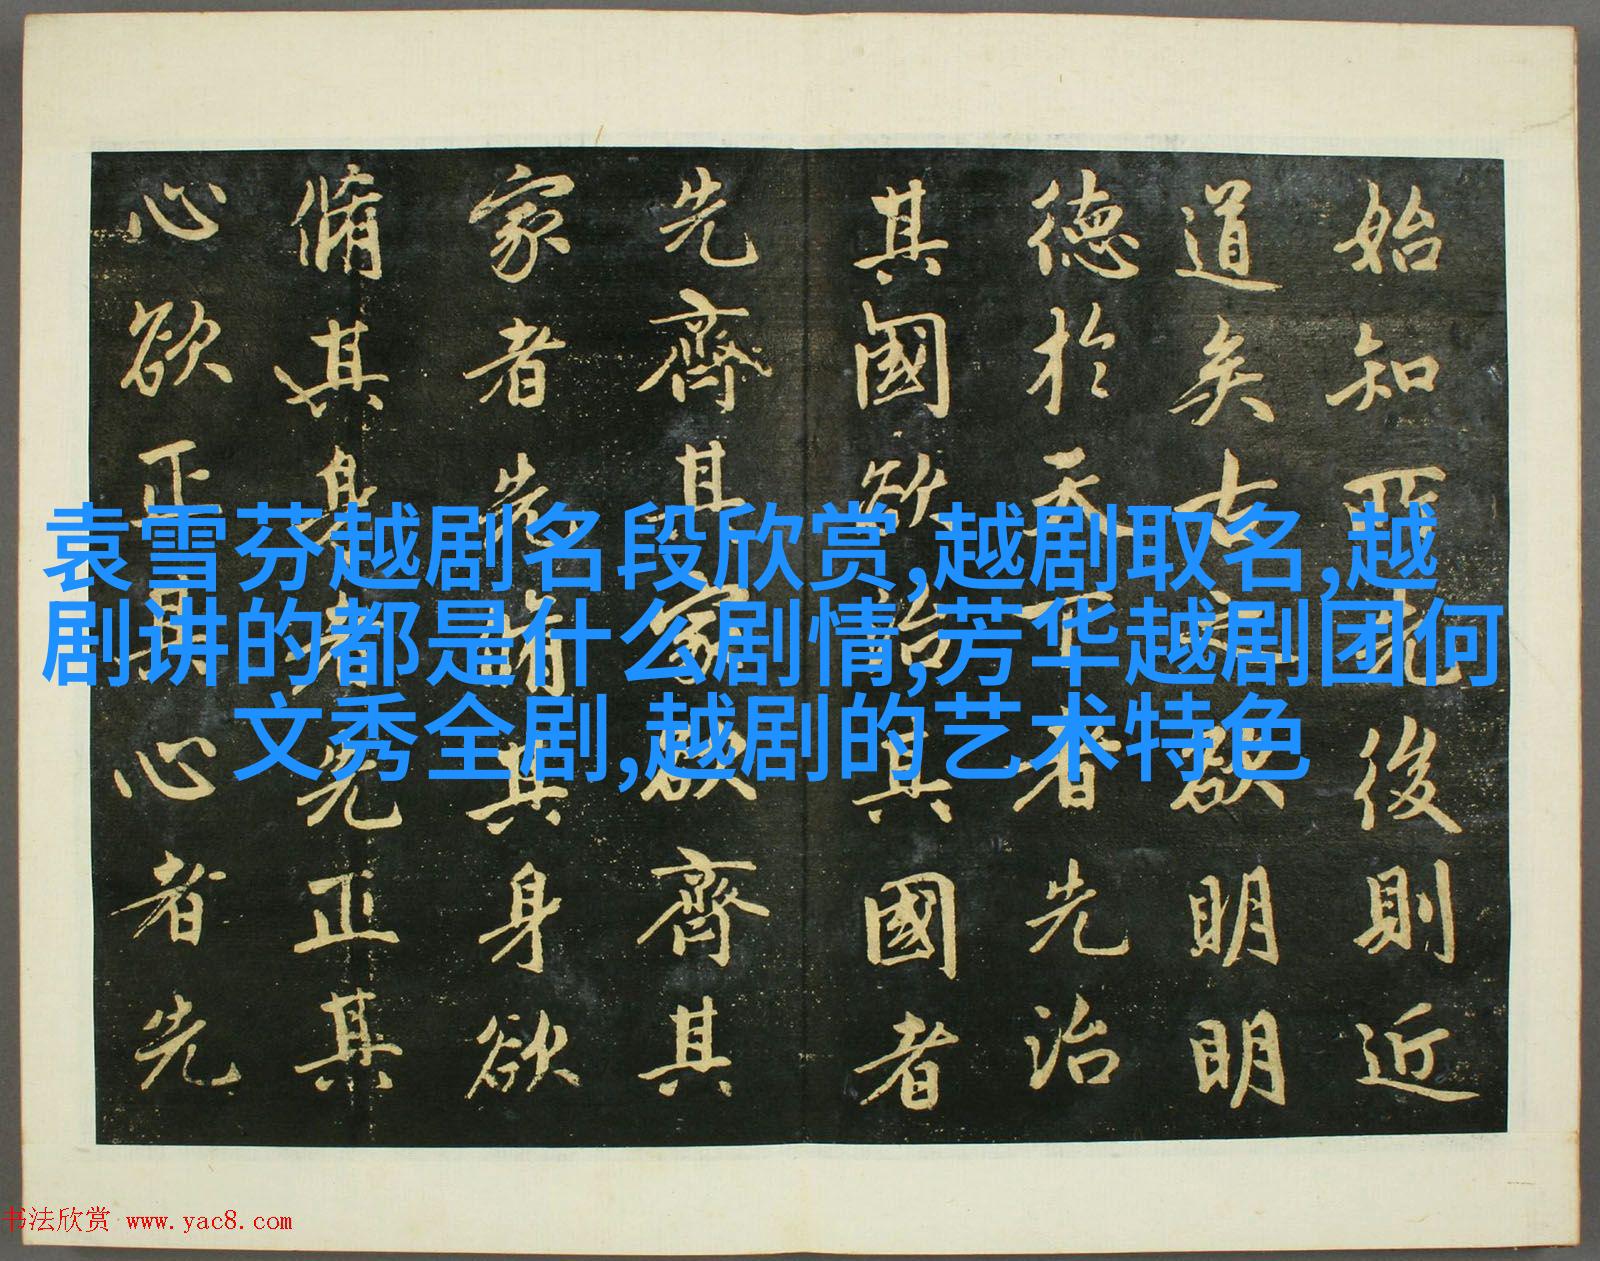 袁雪芬越剧名段欣赏,越剧取名,越
剧讲的都是什么剧情,芳华越剧团何
文秀全剧,越剧的艺术特色
始知所先後則近
道矣古之欲明明
德於天下者先治
其國欲治其國者
先齊其家欲齊其
家者先脩其身欲
脩其身者先正其
心欲正其心者先
书法欣赏 www.yac8.com